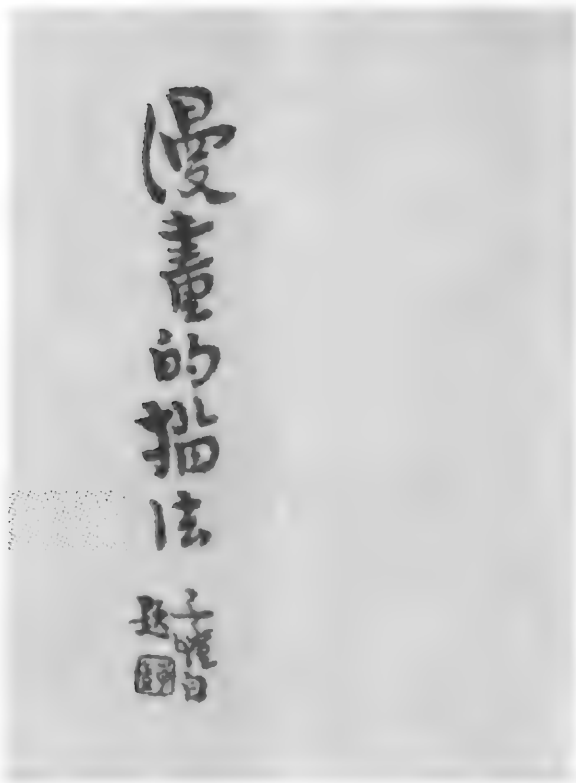 漫畫的描法
子愷自題